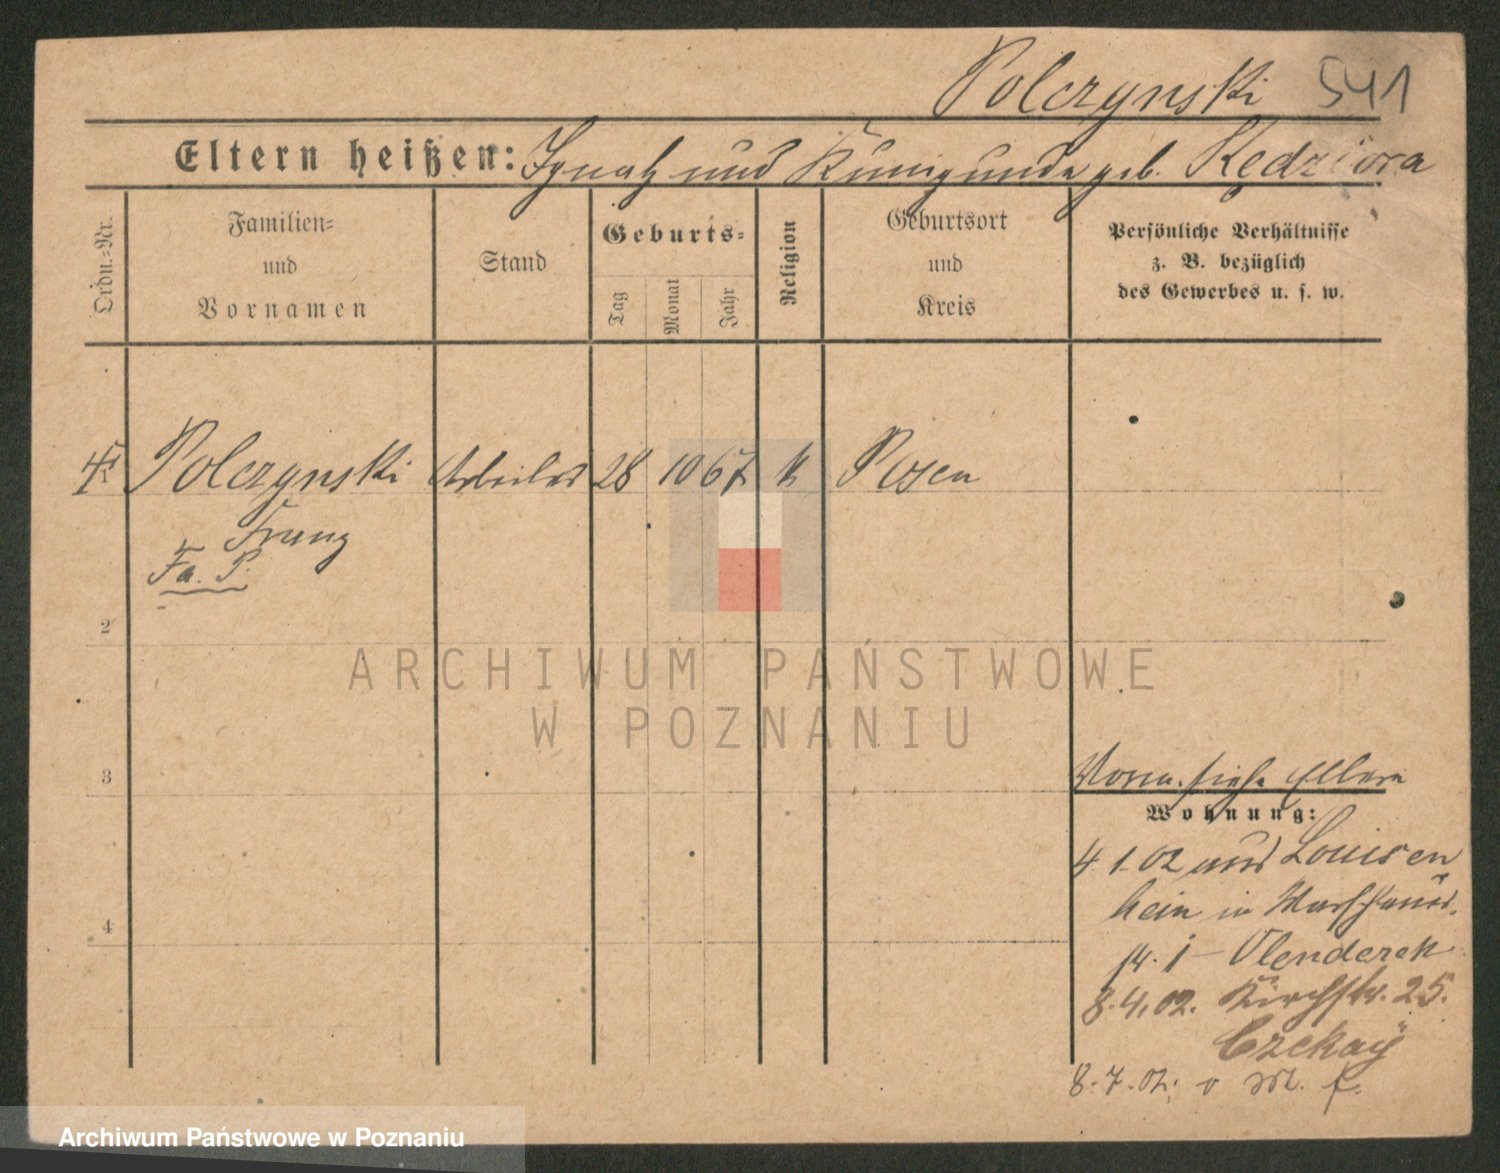 Polczynski 541
Eltern heißen: Ignatz und Kunigunde geb. Kędziora
Ordn.-Nr.
Familien-
und
Vornamen
Stand
Geburts-
Tag
Monat
Jahr
Religion
Geburtsort
und
Kreis
Persönliche Verhältnisse
z. B. bezüglich
des Gewerbes u. s. w.
Polczynski Arbeiter 28 10 67 k Posen
Franz
Fa. P.
2
ARCHIWUM PAŃSTWOWE
W POZNANIU
3
siehe Eltern
Wohnung:
4. 1. 02 aus Louisen
hein in
14. 1 -
8. 4. 02. Kirchstr. 25.
8. 7. 02. v
4
Archiwum Państwowe w Poznaniu